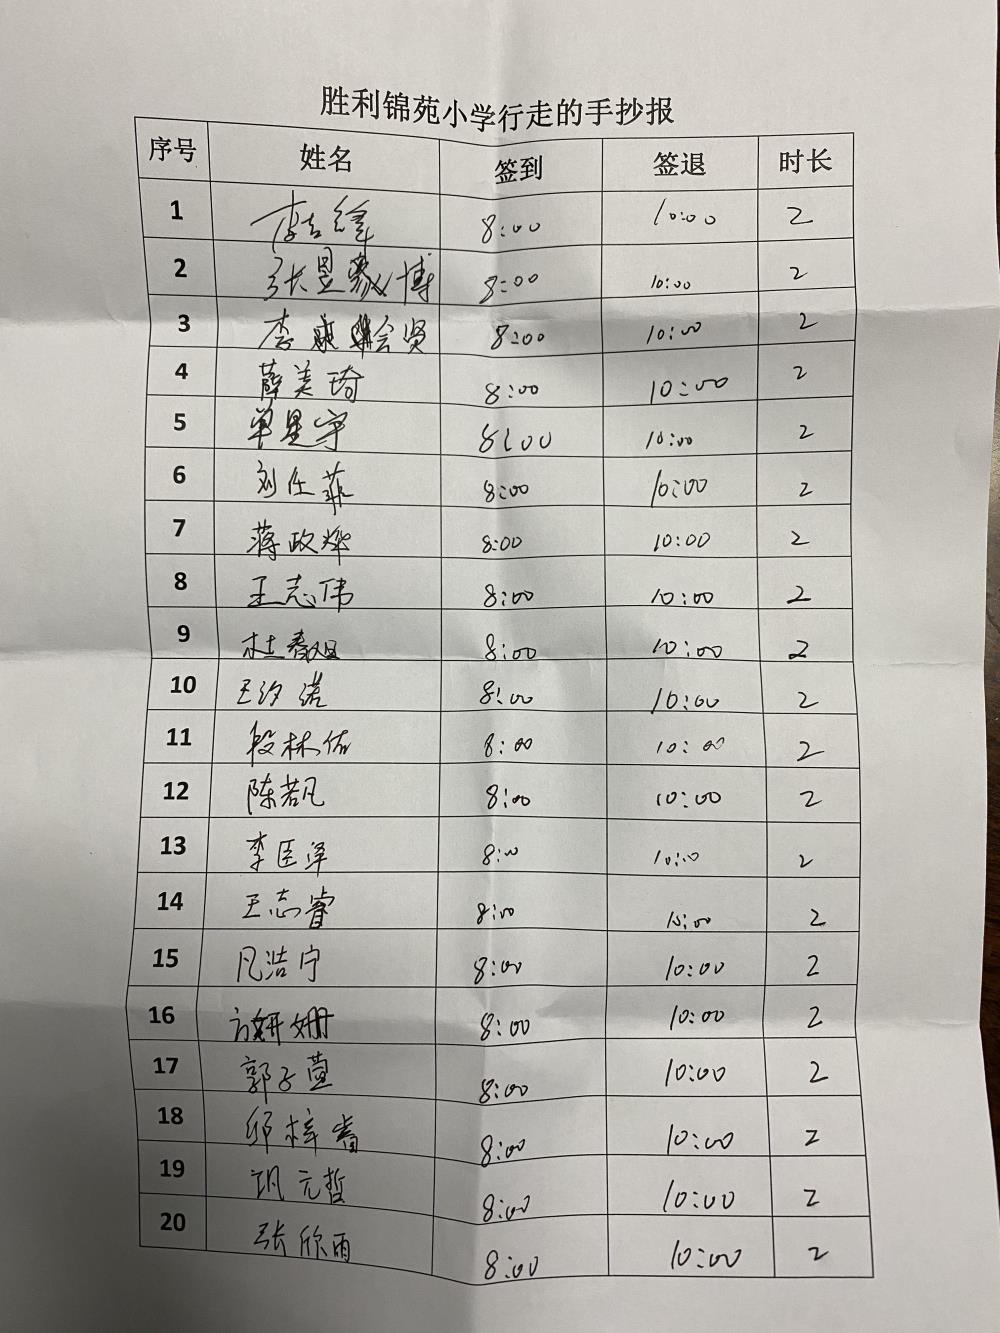 胜利锦苑小学行走的手抄报
序号 姓名 签到 签退 时长
1 8:00 10:00 2
2 张昱 博 8:00 10:00 2
3 李 会贤 8:00 10:00 2
4 薛美琦 8:00 10:00 2
5 单星宇 8:00 10:00 2
6 刘任菲 8:00 10:00 2
7 蒋政烨 8:00 10:00 2
8 王志伟 8:00 10:00 2
9 8:00 10:00 2
10 王汐诺 8:00 10:00 2
11 段林佑 8:00 10:00 2
12 陈若凡 8:00 10:00 2
13 李臣泽 8:00 10:00 2
14 王志睿 8:00 10:00 2
15 凡浩宁 8:00 10:00 2
16 方妍姗 8:00 10:00 2
17 郭子萱 8:00 10:00 2
18 邱梓睿 8:00 10:00 2
19 元哲 8:00 10:00 2
20 张欣雨 8:00 10:00 2